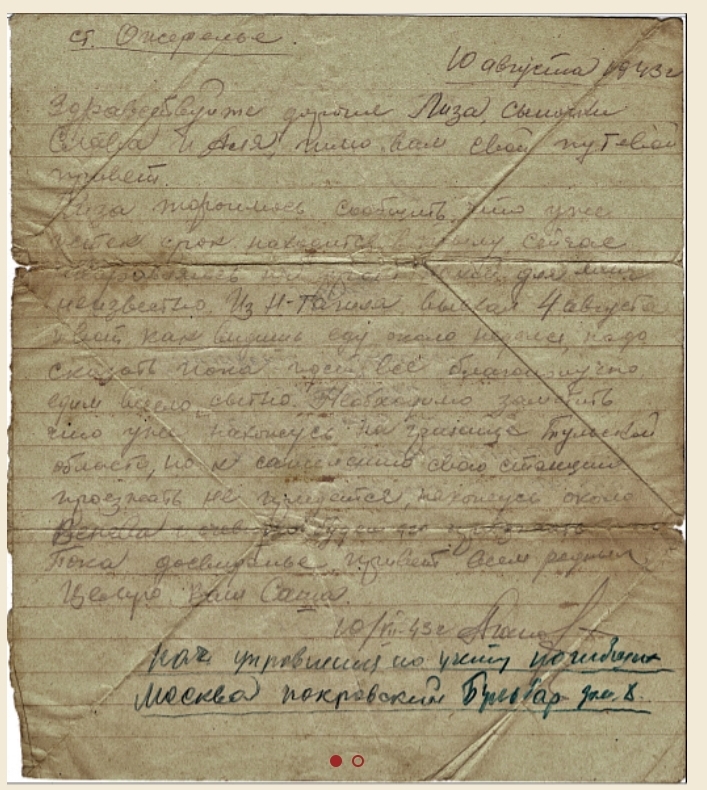 ст. Ожерелье.
10 августа 1943 г
Здравствуйте дорогие Лиза, сыночки
Слава и Аля, шлю вам свой путевой
привет.
Лиза тороплюсь сообщить, что уже
истек срок находится в тылу сейчас
неизвестно. Из Н-Тагила выехал 4 августа
и вот как видишь еду около недели, надо
сказать пока идет все благополучно
едим весело, сытно. Необходимо заметить
что уже нахожусь на границе Тульской
области, но к сожалению свою станцию
проезжать не придется, нахожусь около
Венева
Пока досвиданье, привет всем родным
Целую ваш Саша.
10/VIII-43 г
Нач. управления по учету погибших
Москва покровский Бульвар дом. 8.